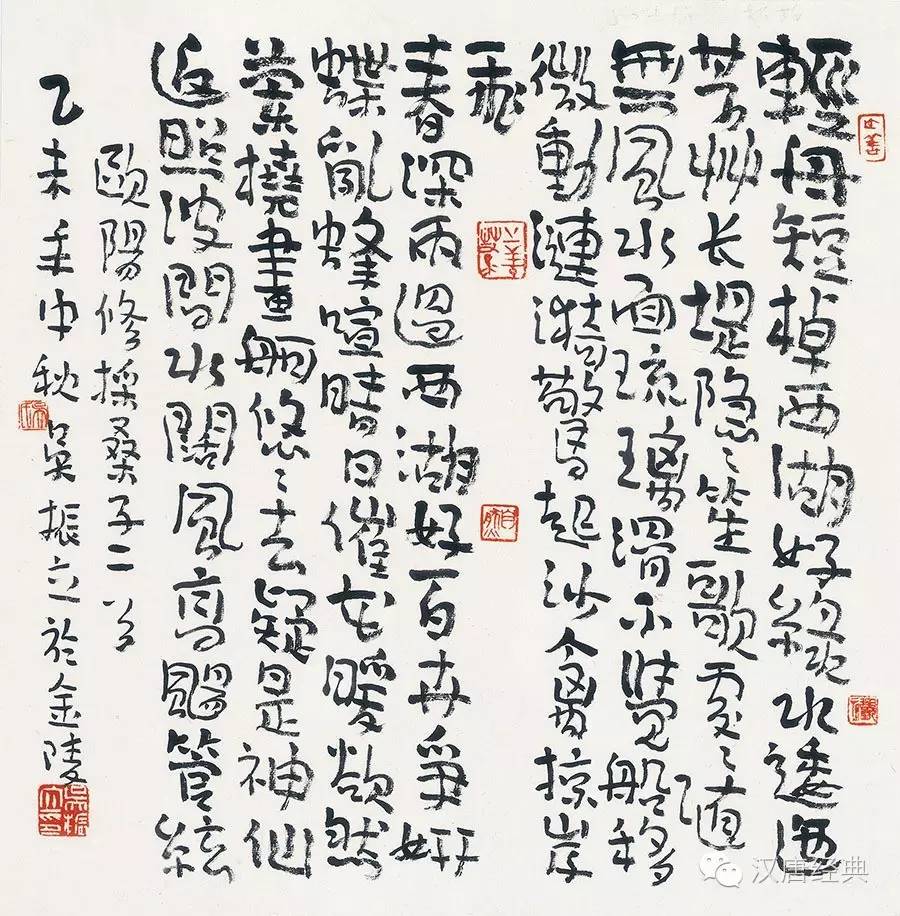 輕舟短棹西湖好綠水逶迤
芳艸长堤隐〻笙歌處〻隨
無風水面琉璃滑不覺船移
微動漣漪驚起沙禽掠岸
飛
春深雨過西湖好百卉爭妍
蝶亂蜂喧晴日催花暖欲然
蘭橈畫舸悠〻去疑是神仙
返照波間水闊風高颺管絃
歐陽修採桑子二首
乙未年中秋吳振立於金陵
自然
汉唐经典